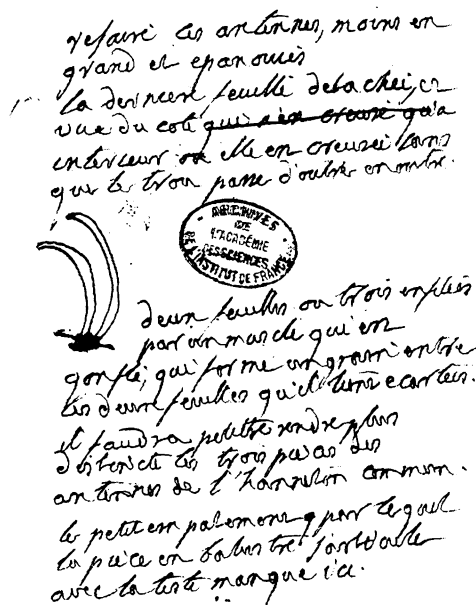 refaire ces antennes, moins en
grand et epanouies
la derniere feuille detacheé, et
vue du coté qui n'en creuse qu'a
interieur ou elle en creuseé sans
que le trou passe d'outre en outre.
ARCHIVES
DE
L'ACADÉMIE
DES SCIENCES
DE L'INSTITUT DE FRANCE
deux feuilles ou trois enfleés
par un muscle qui est
gonflé, qui forme un grain entre
les deux feuilles qu'il tient ecarteés.
il faudra petitre rendre plus
distincte les trois pieces des
antennes de l'hanneton commun.
le petit empatement par lequel
la piece en balustre s'articule
avec la teste manque ici.